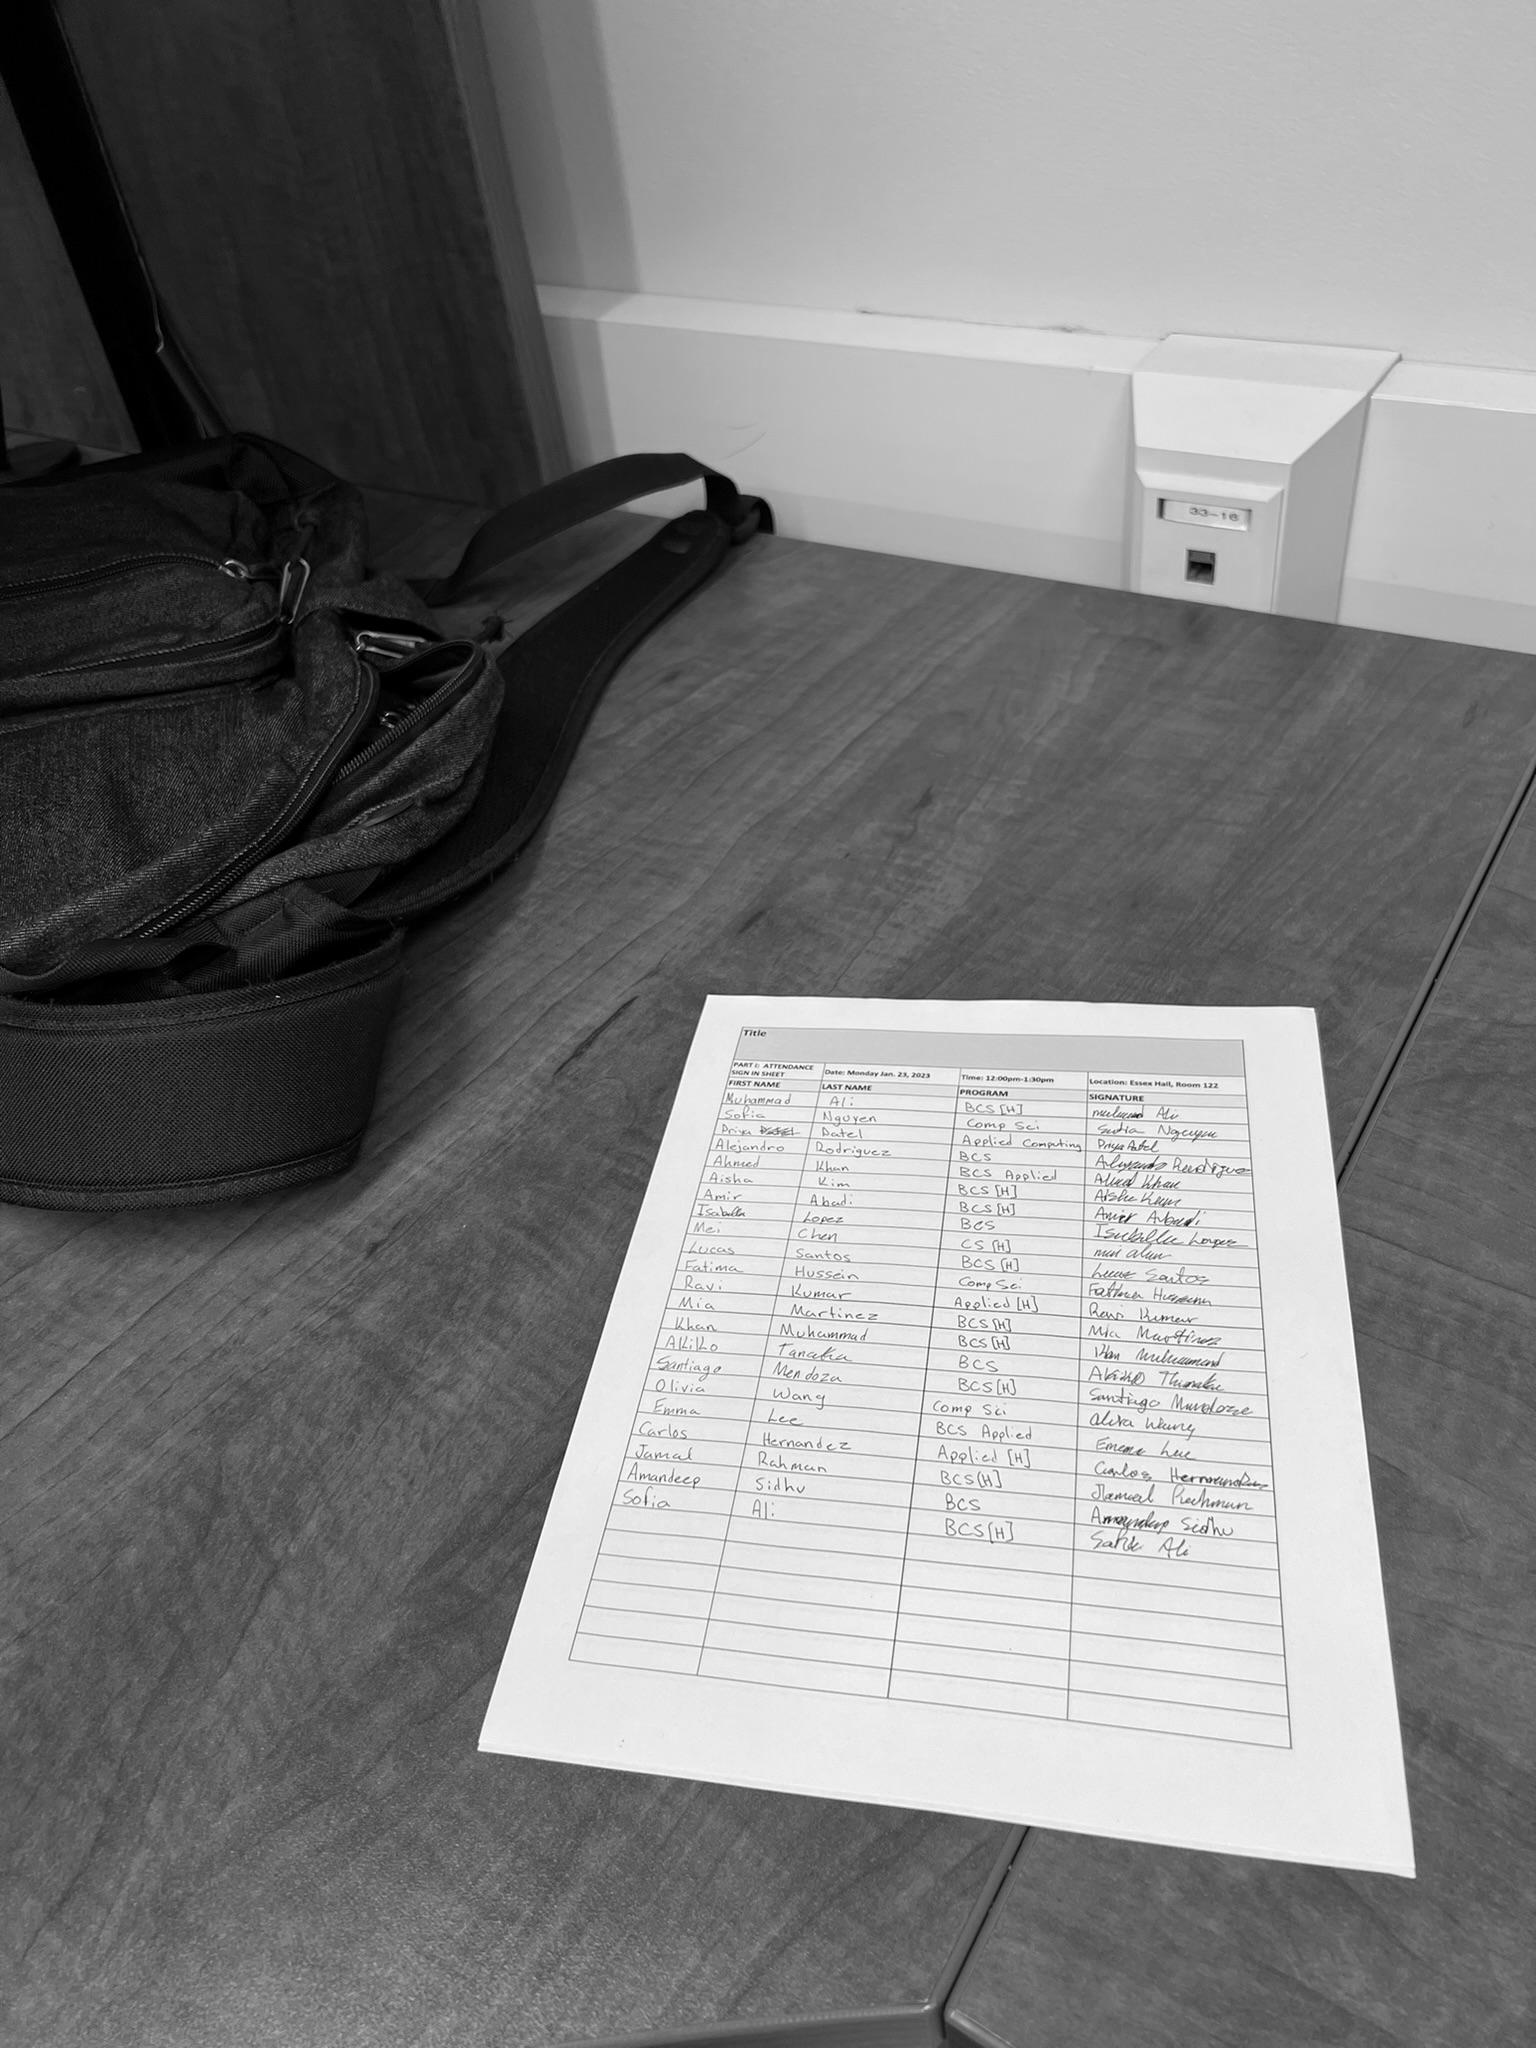 33-16
Title
PART I: ATTENDANCE SIGN IN SHEET Date: Monday Jan. 23, 2023 Time: 12:00pm-1:30pm Location: Essex Hall, Room 122
FIRST NAME LAST NAME PROGRAM SIGNATURE
Muhammad Ali BCS [H] Ali
Sofia Nguyen Comp Sci Nguyen
Priya Patel Applied Computing Priya Patel
Alejandro Rodriguez BCS Alejandro Rodriguez
Ahmed Khan BCS Applied Ahmed Khan
Aisha Kim BCS [H] Aisha Kim
Amir Abadi BCS [H] Amir Abadi
Isabella Lopez BCS Isabella Lopez
Mei Chen CS [H]
Lucas Santos BCS [H] Lucas Santos
Fatima Hussein Comp Sci Fatima Hussein
Ravi Kumar Applied [H] Ravi Kumar
Mia Martinez BCS [H] Mia Martinez
Khan Muhammad BCS [H] Khan Muhammad
Akiko Tanaka BCS Akiko Tanaka
Santiago Mendoza BCS [H] Santiago Mendoza
Olivia Wang Comp Sci Wang
Emma Lee BCS Applied Emma Lee
Carlos Hernandez Applied [H] Carlos Hernandez
Jamal Rahman BCS [H] Jamal Rahman
Amandeep Sidhu BCS Amandeep Sidhu
Sofia Ali BCS [H] Ali